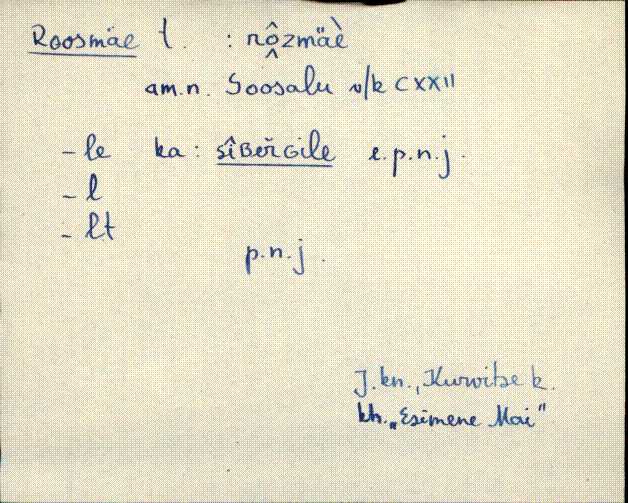 Roosmäe t. : rô̭zmäè
am.n. Soosalu v/k CXXII
- le ka: sîBeřGile e.p.n.j.
- l
- lt
p.n.j.
J. kn., Kurwitse k.
kh. „Esimene Mai"